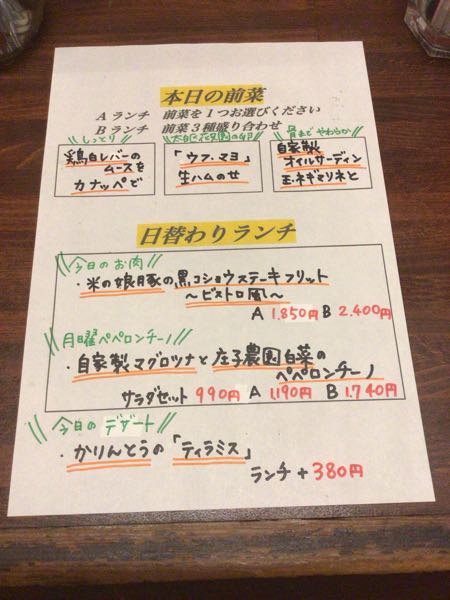 本日の前菜
Aランチ　前菜を１つお選びください
Bランチ　前菜３種盛り合わせ
しっとり
鶏白レバーの
ムースを
カナッペで
花園の卵
「ウフ・マヨ」
生ハムのせ
骨まで やわらか
自家製
オイルサーディン
玉ネギマリネと
日替わりランチ
今日のお肉
・米の娘豚の黒コショウステーキフリット
〜ビストロ風〜
A 1.850円 B 2.400円
月曜ペペロンチーノ
・自家製マグロツナと庄子農園白菜の
ペペロンチーノ
サラダセット 990円 A 1190円 B 1.740円
今日の デザート
・かりんとうの「ティラミス」
ランチ + 380円